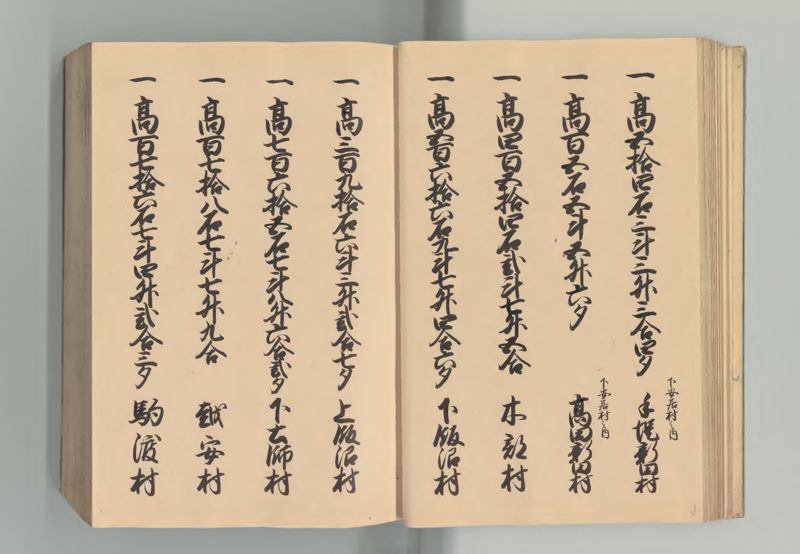 一 髙五拾四石三斗三升三合四夕 下安居村之内 手堤新田村
一 髙百五石五斗五升六夕 下安居村之内 髙田新田村
一 髙四百五拾四石弐斗七升五合 木部村
一 髙五百六拾六石九斗七升四合六夕 下飯沼村
一 髙三百九拾石六斗三升弐合七夕 上飯沼村
一 髙七百六拾五石七斗八升六合弐夕 下土師村
一 髙百七拾八石七斗七升九合 越安村
一 髙百七拾六石七斗四升弐合三夕 駒渡村